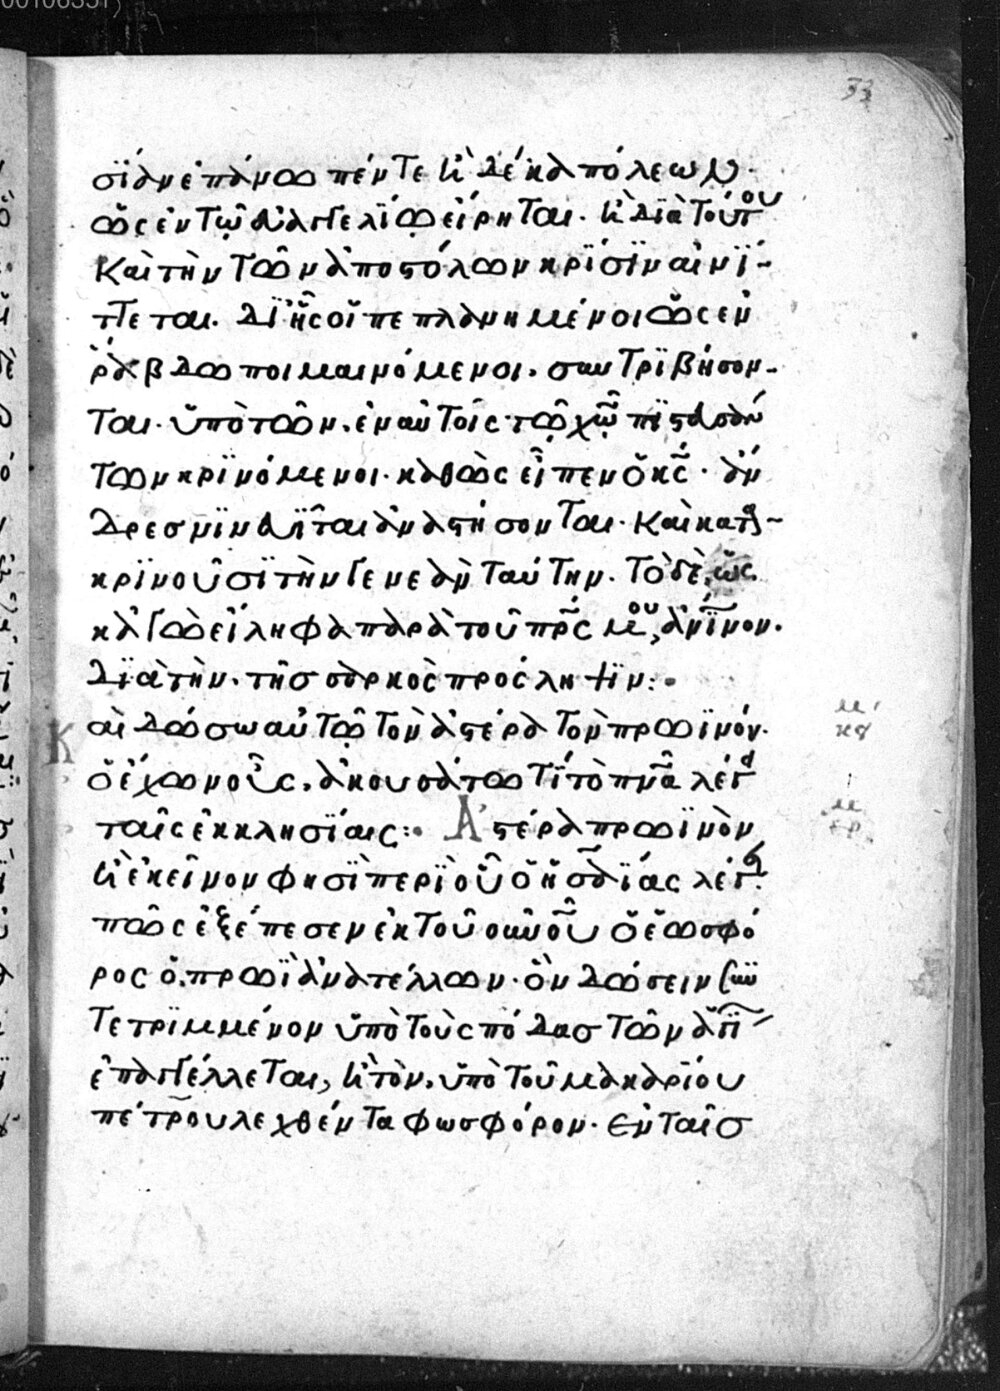 33
σΐαν ἐπάνω πέντε κ̀ δέκα πόλεων.
ὡς ἐν τῷ εὐαγγελίῳ εἴρηται. κ̀ διὰ τούτου
Καὶ τὴν τῶν ἀποστόλων κρΐσϊν αἰνΐ-
ττεται. δϊ ἧς οἱ πεπλανημένοι ὡς ἐν
ῥάβδω ποιμαινόμενοι. συντρϊβήσον-
ται. ὑπὸ τῶν. ἐν αὐτοῖς τῷ χῷ πϊστευσάν
των κρϊνόμενοι. καθὼς εἶπεν ὁ κς̄. ἄν
δρες νϊνευῖται ἀναστήσονται. Καὶ κατα-
κρϊνοῦσϊ τὴν γενεὰν ταύτην. τὸ δὲ, ὡς
κἀγὼ εἴληφα παρὰ τοῦ πρ̄ς μου, ἀνϊνον.
Δϊὰ τὴν. τῆσ σαρκὸς πρόσληψϊν:.
Καὶ δώσω αὐτῷ τὸν ἀστέρα τὸν πρωϊνόν.
ὁ ἔχων οὖς. ἀκουσάτω τί τὸ πνᾶ λέγει
ταῖς ἐκκλησΐαις:. Ἀστέρα πρωϊνὸν
κ̀ ἐκεῖνον φησϊ περὶ οὗ ὁ ἡσαΐας λέγει.
πῶς ἐξέπεσεν ἐκ τοῦ οὐνοῦ ὁ ἑωσφό
ρος ὁ. πρωῒ ἀνατέλλων. ὃν δώσειν συν
τετρϊμμένον ὑπὸ τοὺς πόδασ τῶν ἁγΐ
ἐπαγγέλλεται, κ̀ τὸν. ὑπὸ τοῦ μακαρΐου
πέτρου λεχθέντα φωσφόρον. Ἐν ταῖσ